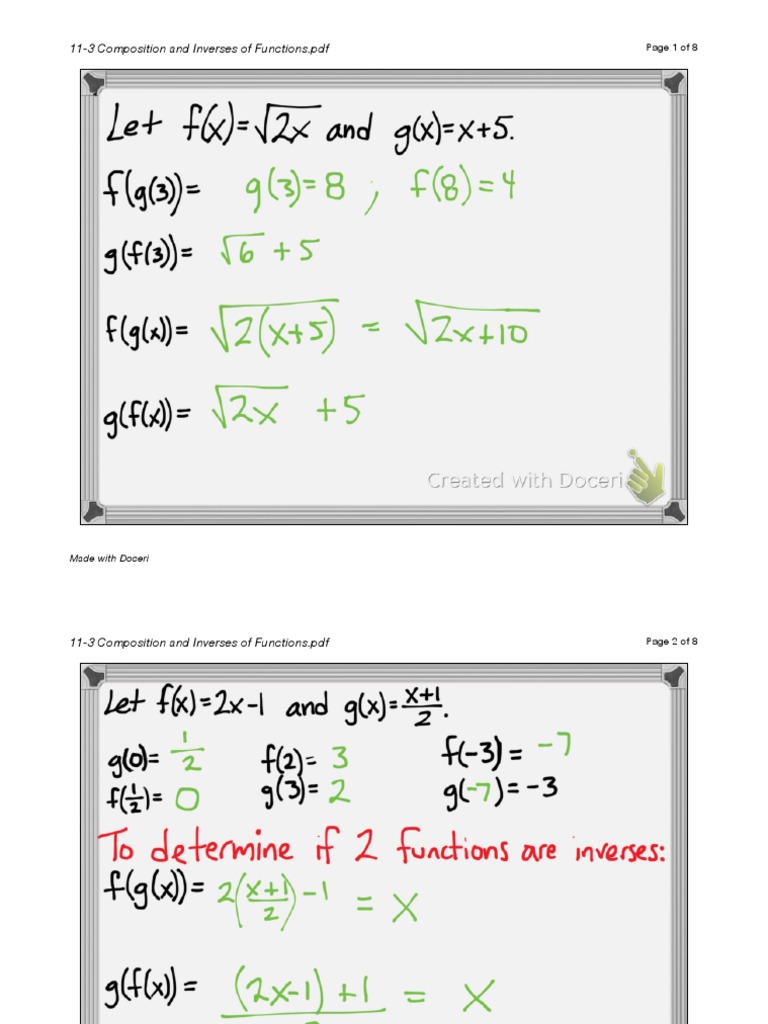 11-3 Composition and Inverses of Functions.pdf Page 1 of 8
Let f(x)=√2x and g(x)=x+5.
f(g(3))= g(3)=8 ; f(8)=4
g(f(3))= √6 +5
f(g(x))= √2(x+5) = √2x+10
g(f(x))= √2x +5
Created with Doceri
Made with Doceri
11-3 Composition and Inverses of Functions.pdf Page 2 of 8
Let f(x)=2x-1 and g(x)=x+1/2.
g(0)= 1/2 f(2)= 3 f(-3)= -7
f(1/2)= 0 g(3)= 2 g(-7)=-3
To determine if 2 functions are inverses:
f(g(x))= 2(x+1/2)-1 = x
g(f(x))= (2x-1)+1 = x